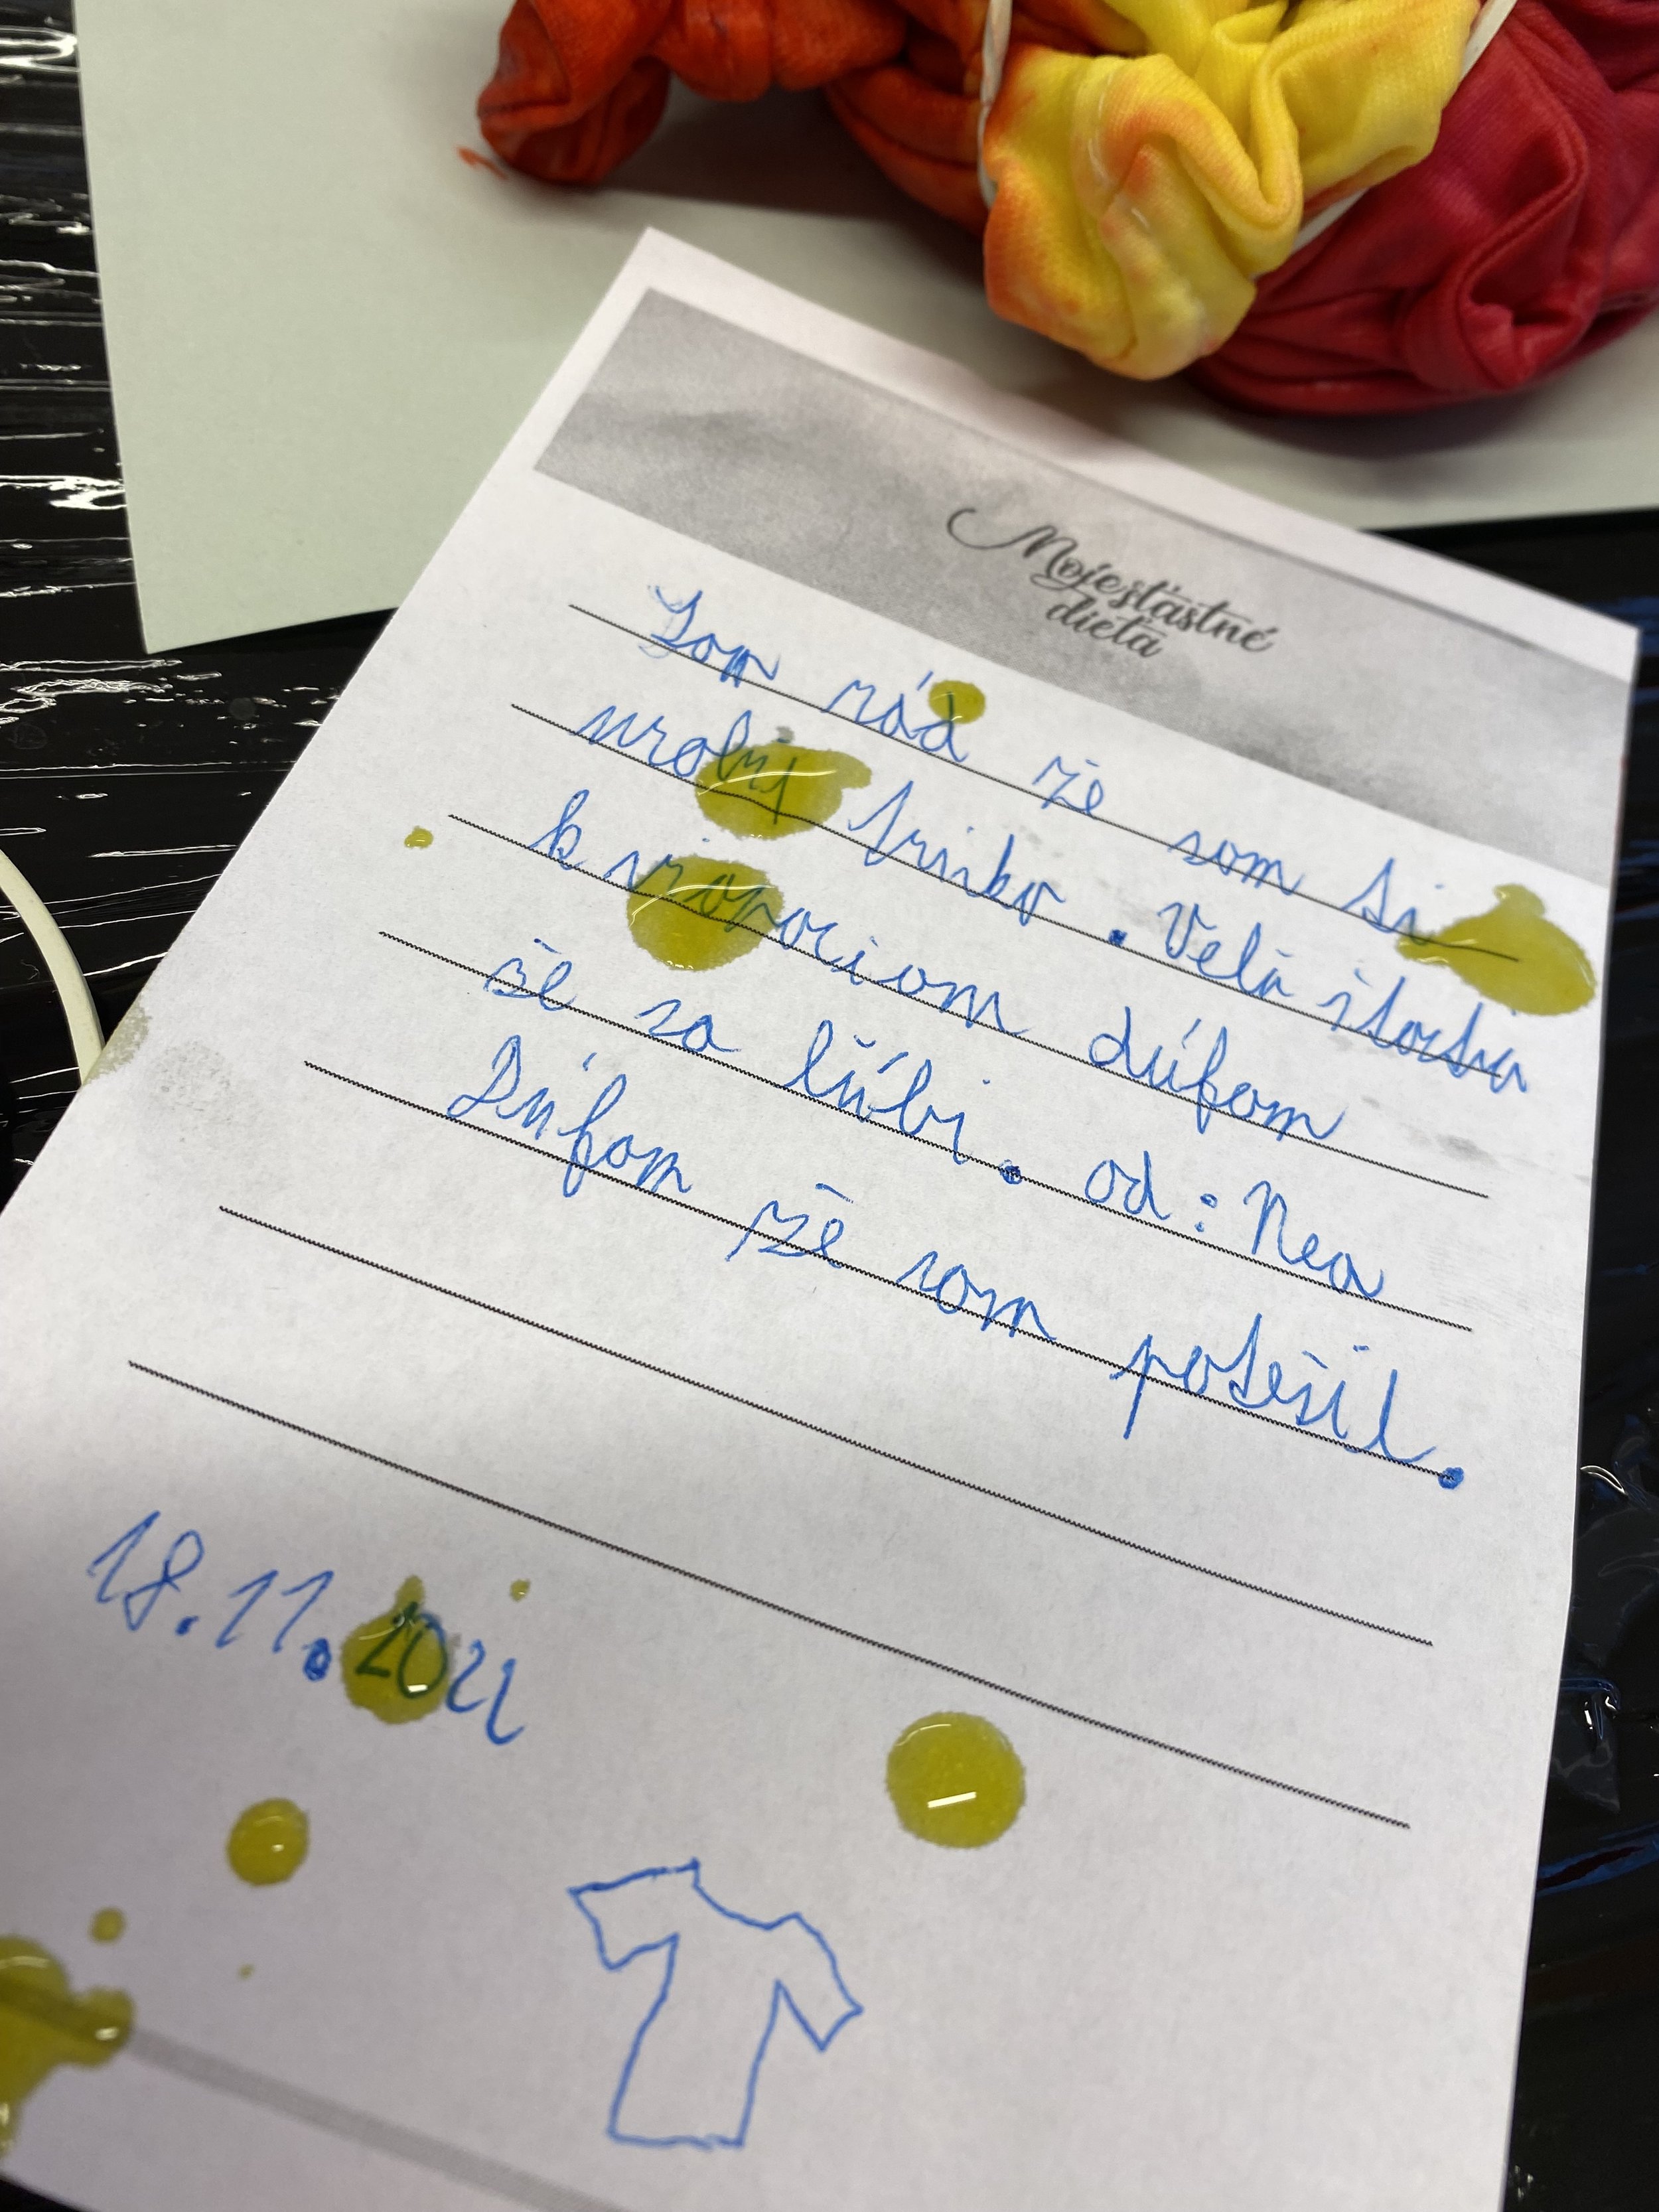 Moje šťastné
dieťa
Som rád že som si
urobil triko. Velà
k vianociom dúfom
že sa ľúbi. od: Nea
Dúfom že som potešil.
18.11.2022